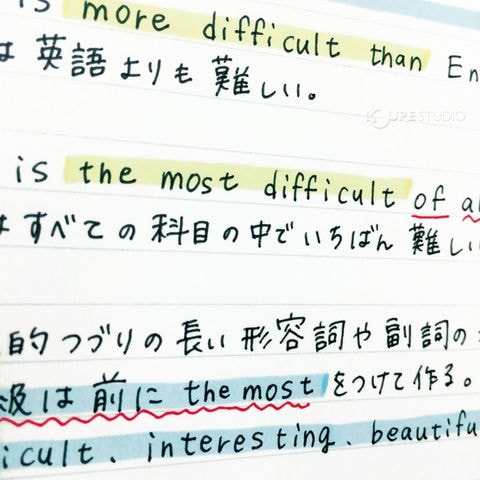 is more difficult than En
は英語よりも難しい。
LOUPE STUDIO
is the most difficult of al
はすべての科目の中でいちばん難しい
的つづりの長い形容詞や副詞の
級は前に the most をつけて作る。
icult、interesting、beautifu